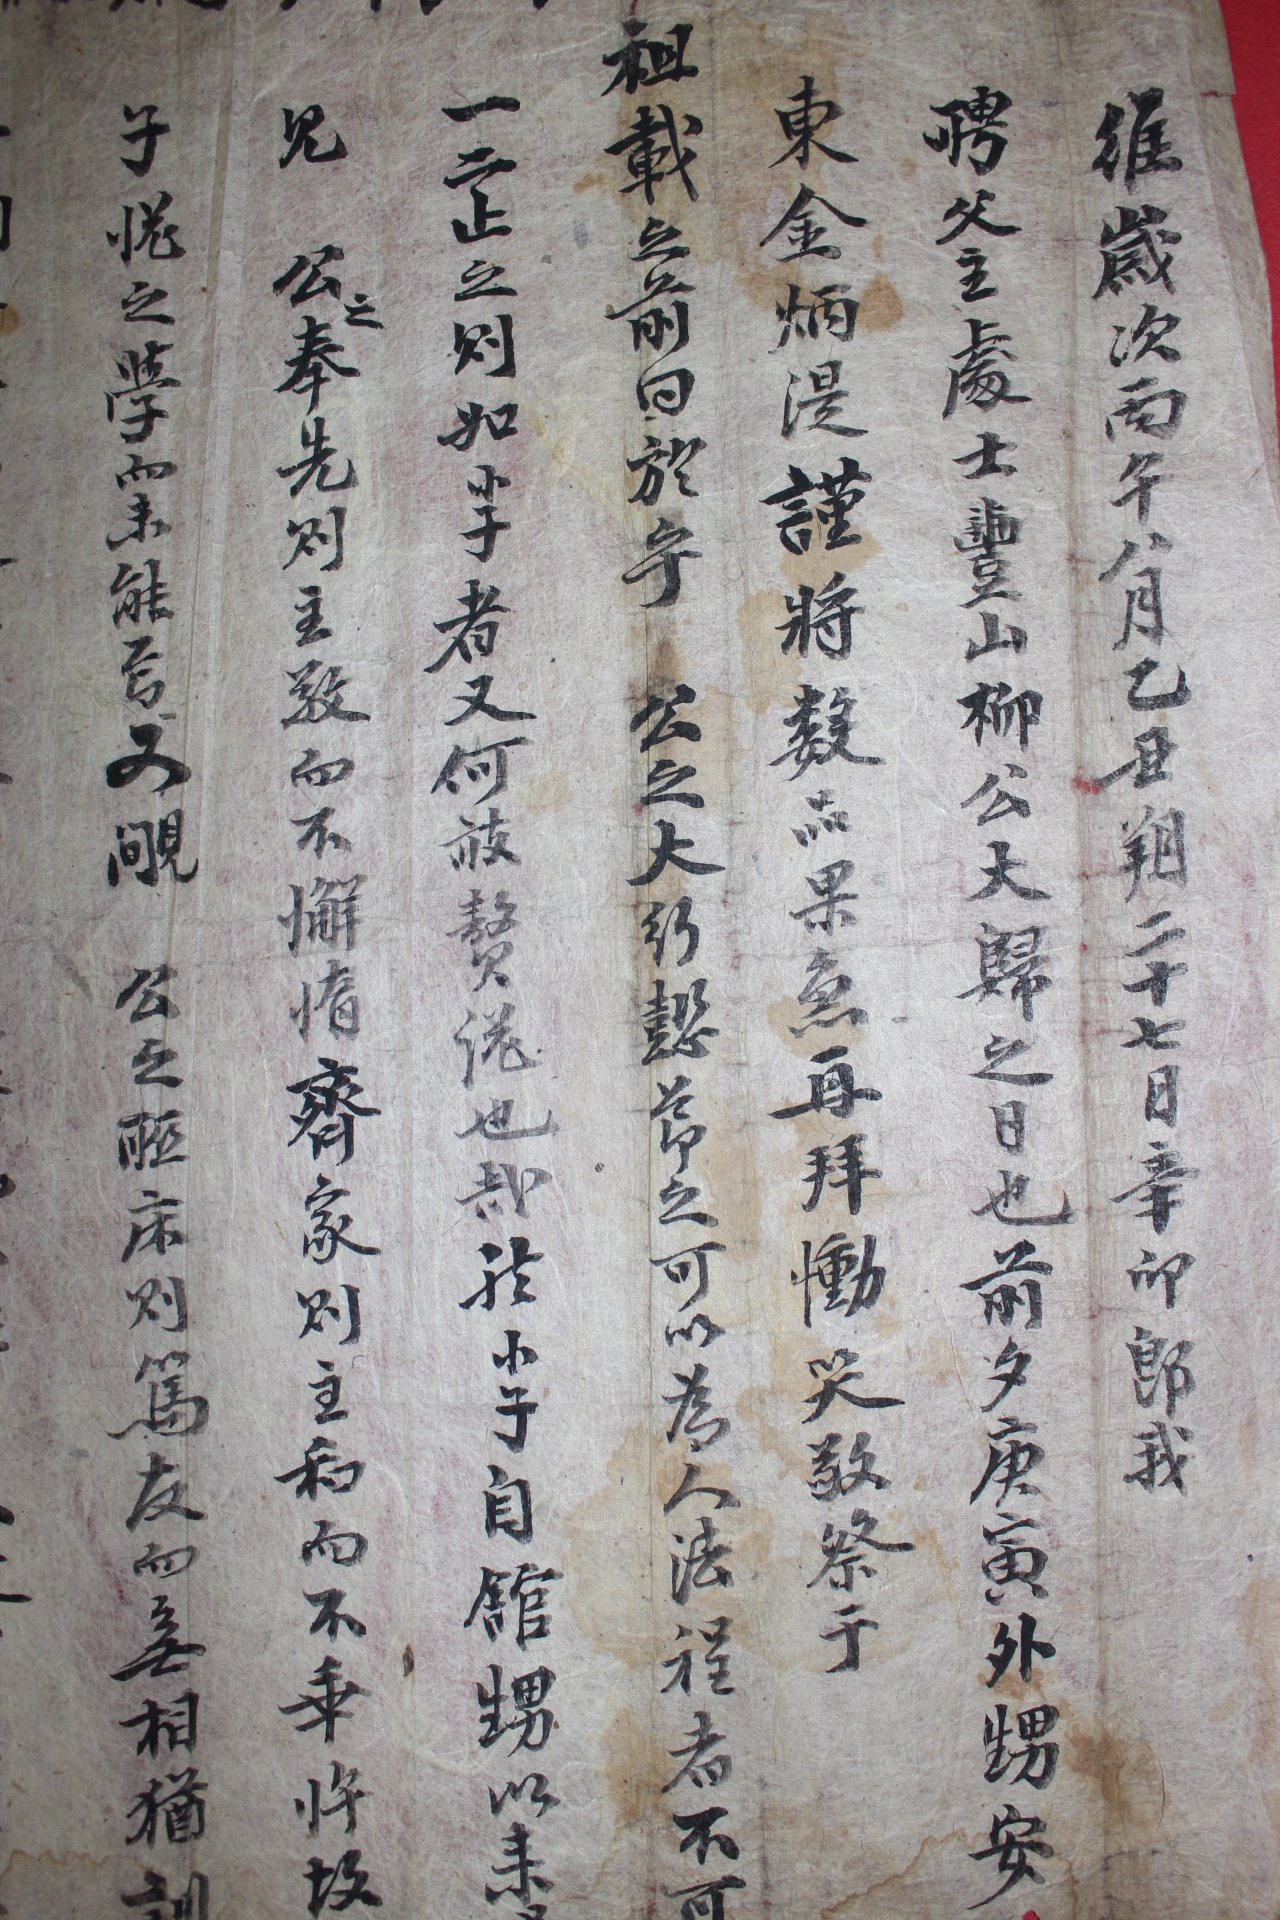 維歲次丙午八月乙丑朔二十七日辛卯郎我
聘父主處士豊山柳公大歸之日也前夕庚寅外甥安
東金炳湜謹將数品果魚再拜慟哭敬祭于
祖載之前曰於乎 公之大行懿節之可以為人法程者不可
一二止之則如小子者又何敢贅說也哉於小子自舘甥以来
見 公之奉先則主敬而不懈惰齊家則主和而不乖忤故
子悅之學而未能焉又覸 公之聯床則篤友而無相猶訓